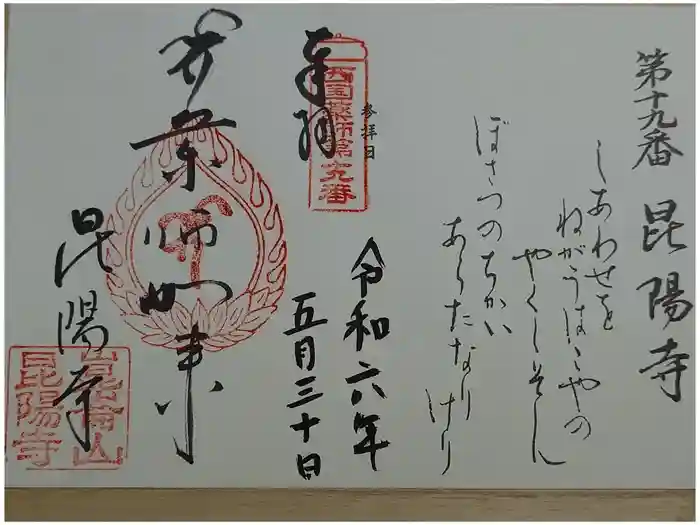 第十九番 昆陽寺
しあわせを
ねがうはゝやの
やくしそん
ぼさつのちかい
あらたなりけり
参拝日
西国薬師第十九番
奉拝
令和六年
五月三十日
薬師如来
昆陽寺
崑崙山
昆陽寺